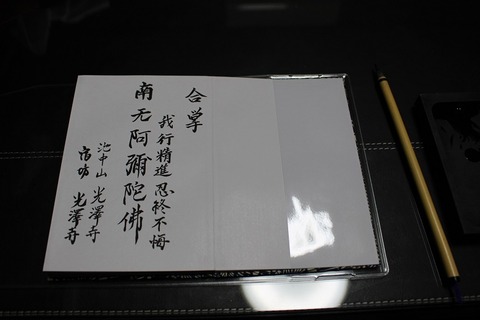 合掌
我行精進忍終不悔
南无阿彌陀佛
池中山 光澤寺
宿坊 光澤寺